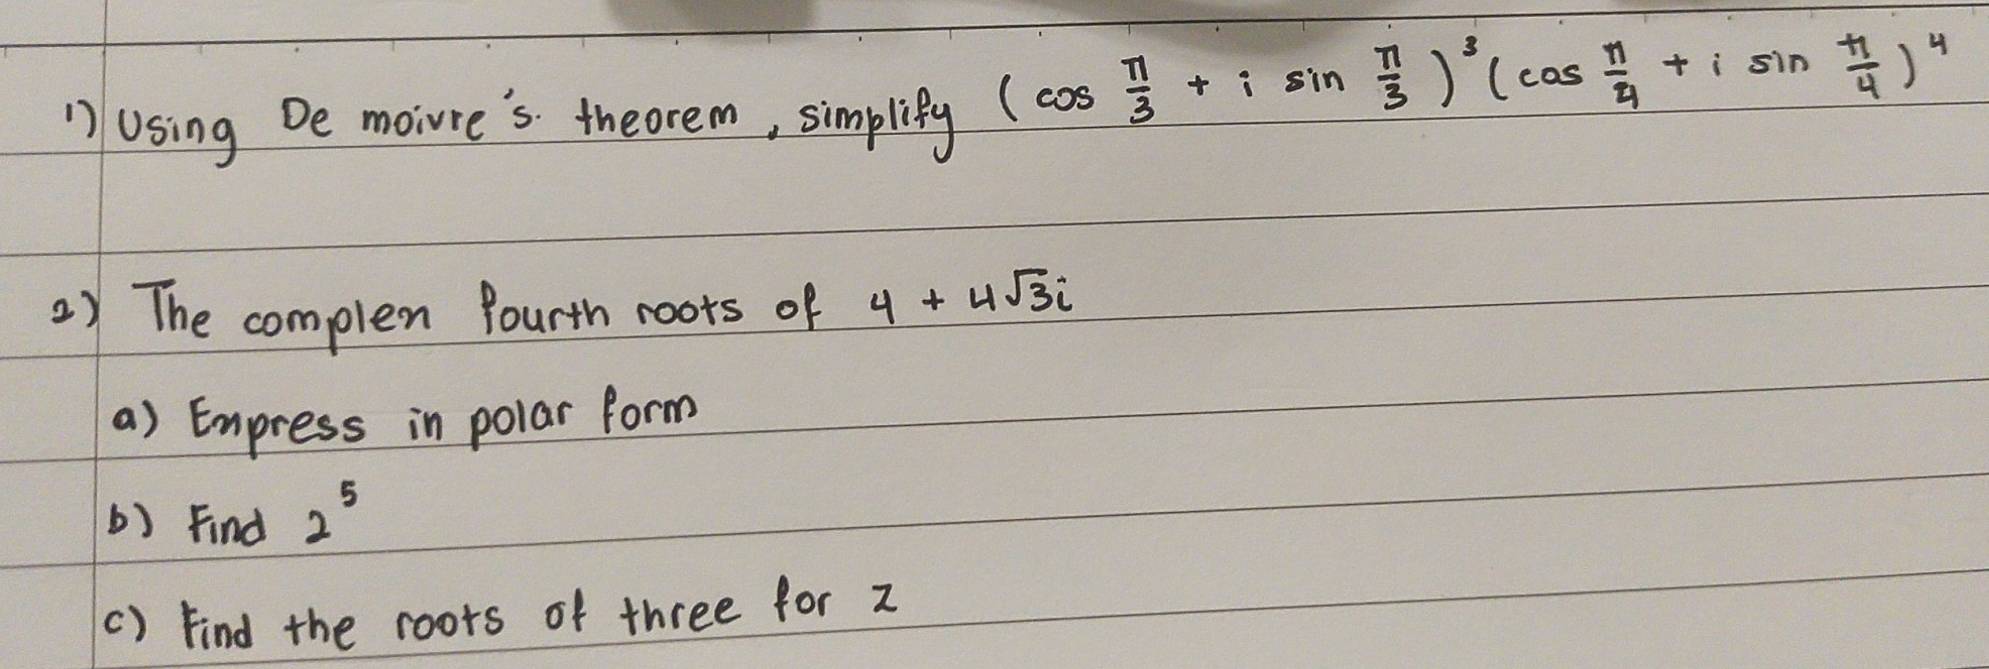 1) Using De moivre's. theorem, simplify (cos π/3 + i sin π/3)³(cos π/4 + i sin π/4)⁴
2) The complen fourth roots of 4 + 4√3i
a) Enpress in polar form
b) Find 2⁵
c) Find the roots of three for z